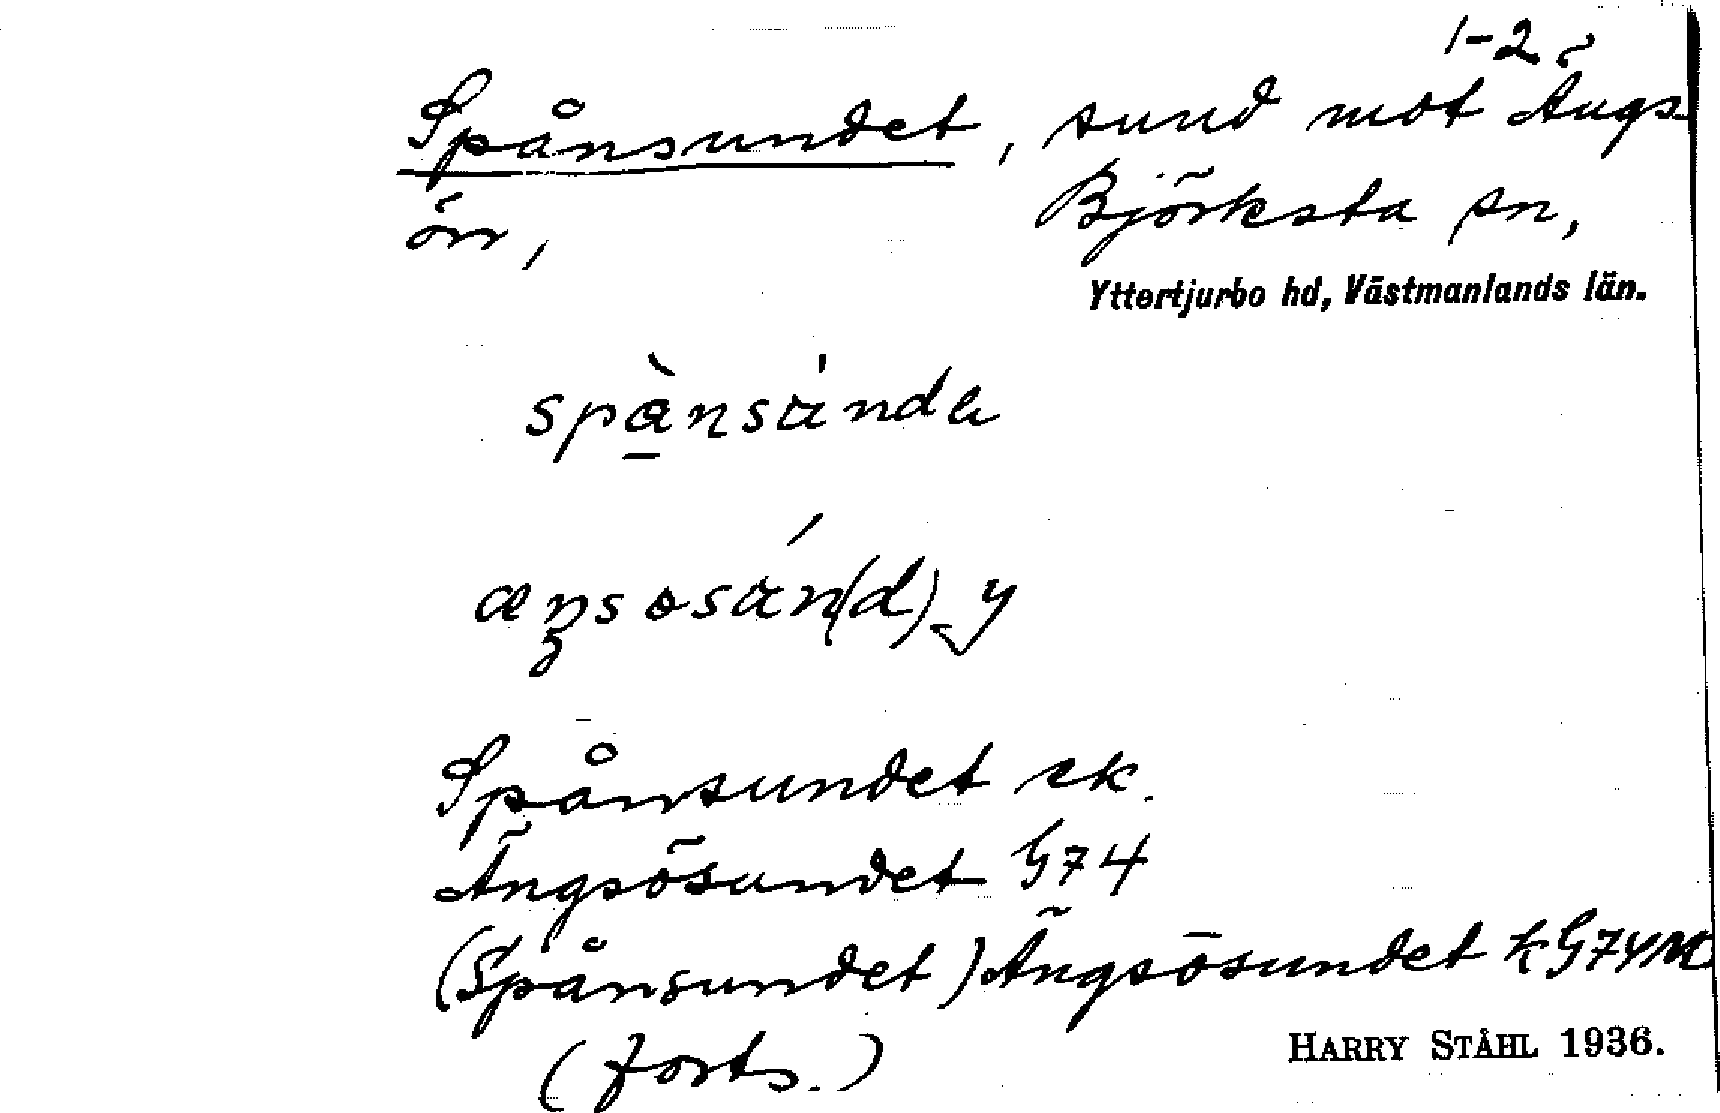 1-2
Spånsundet, sund mot Ängs-
örr,
Björksta sn,
Yttertjurbo hd, Västmanlands län.
Spånsundet ek.
Ängsösundet G74
(Spånsundet) Ängsösundet k G74M
(forts.)
HARRY STÅHL 1936.